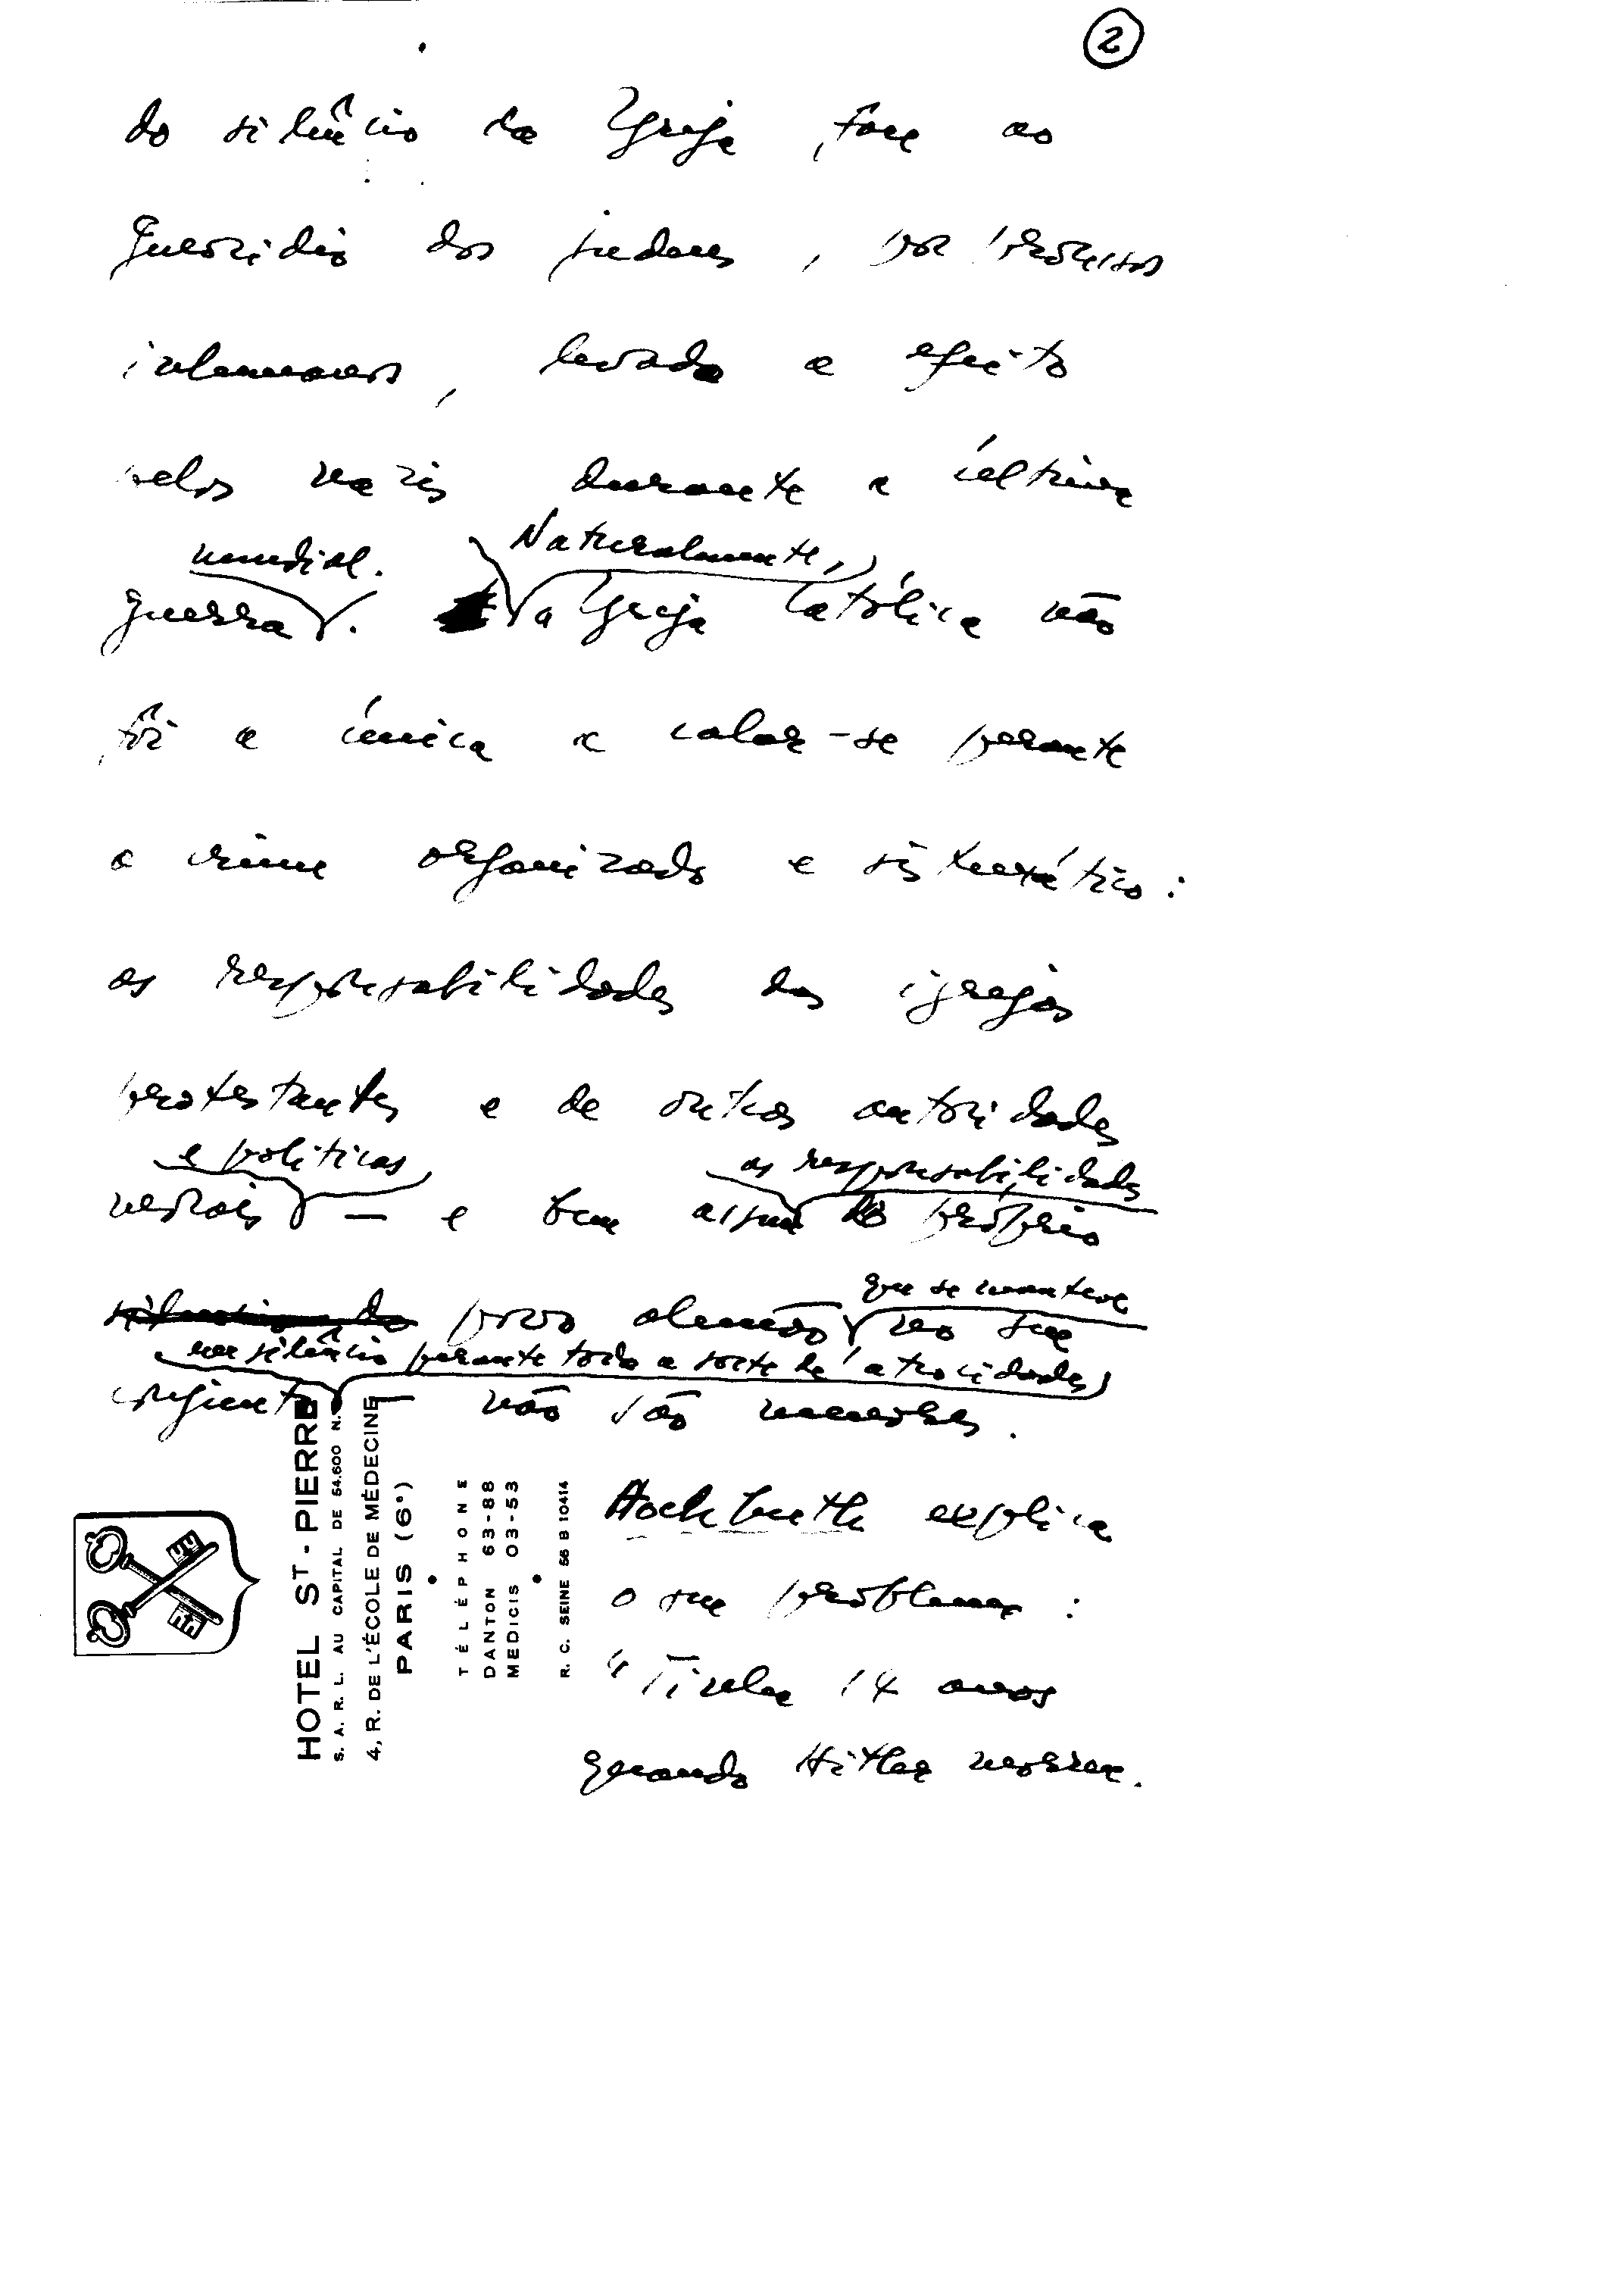 2
do silêncio da Igreja, face ao
genocídio dos judeus, por processos
inhumanos, levado a efeito
pelos nazis durante a última
mundial. Naturalmente,
guerra. a Igreja Católica não
foi a única a calar-se perante
o crime organizado e sistemático:
as responsabilidades das igrejas
protestantes e de outras autoridades
e políticas as responsabilidades
— e bem assim do próprio
povo alemão no seu
que se manteve
em silêncio perante toda a sorte de atrocidades
conjunto — não são menores.
Hochhuth explica
o seu problema:
"Tinha 14 anos
quando Hitler morreu.
HOTEL ST - PIERRE
S. A. R. L. AU CAPITAL DE 54.600 N.
4, R. DE L'ÉCOLE DE MÉDECINE
PARIS (6e)
TÉLÉPHONE
DANTON 63-88
MEDICIS 03-53
R. C. SEINE 56 B 10414